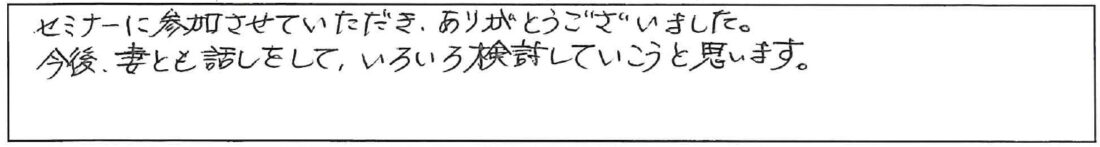 セミナーに参加させていただき、ありがとうございました。
今後、妻とも話しをして、いろいろ検討していこうと思います。